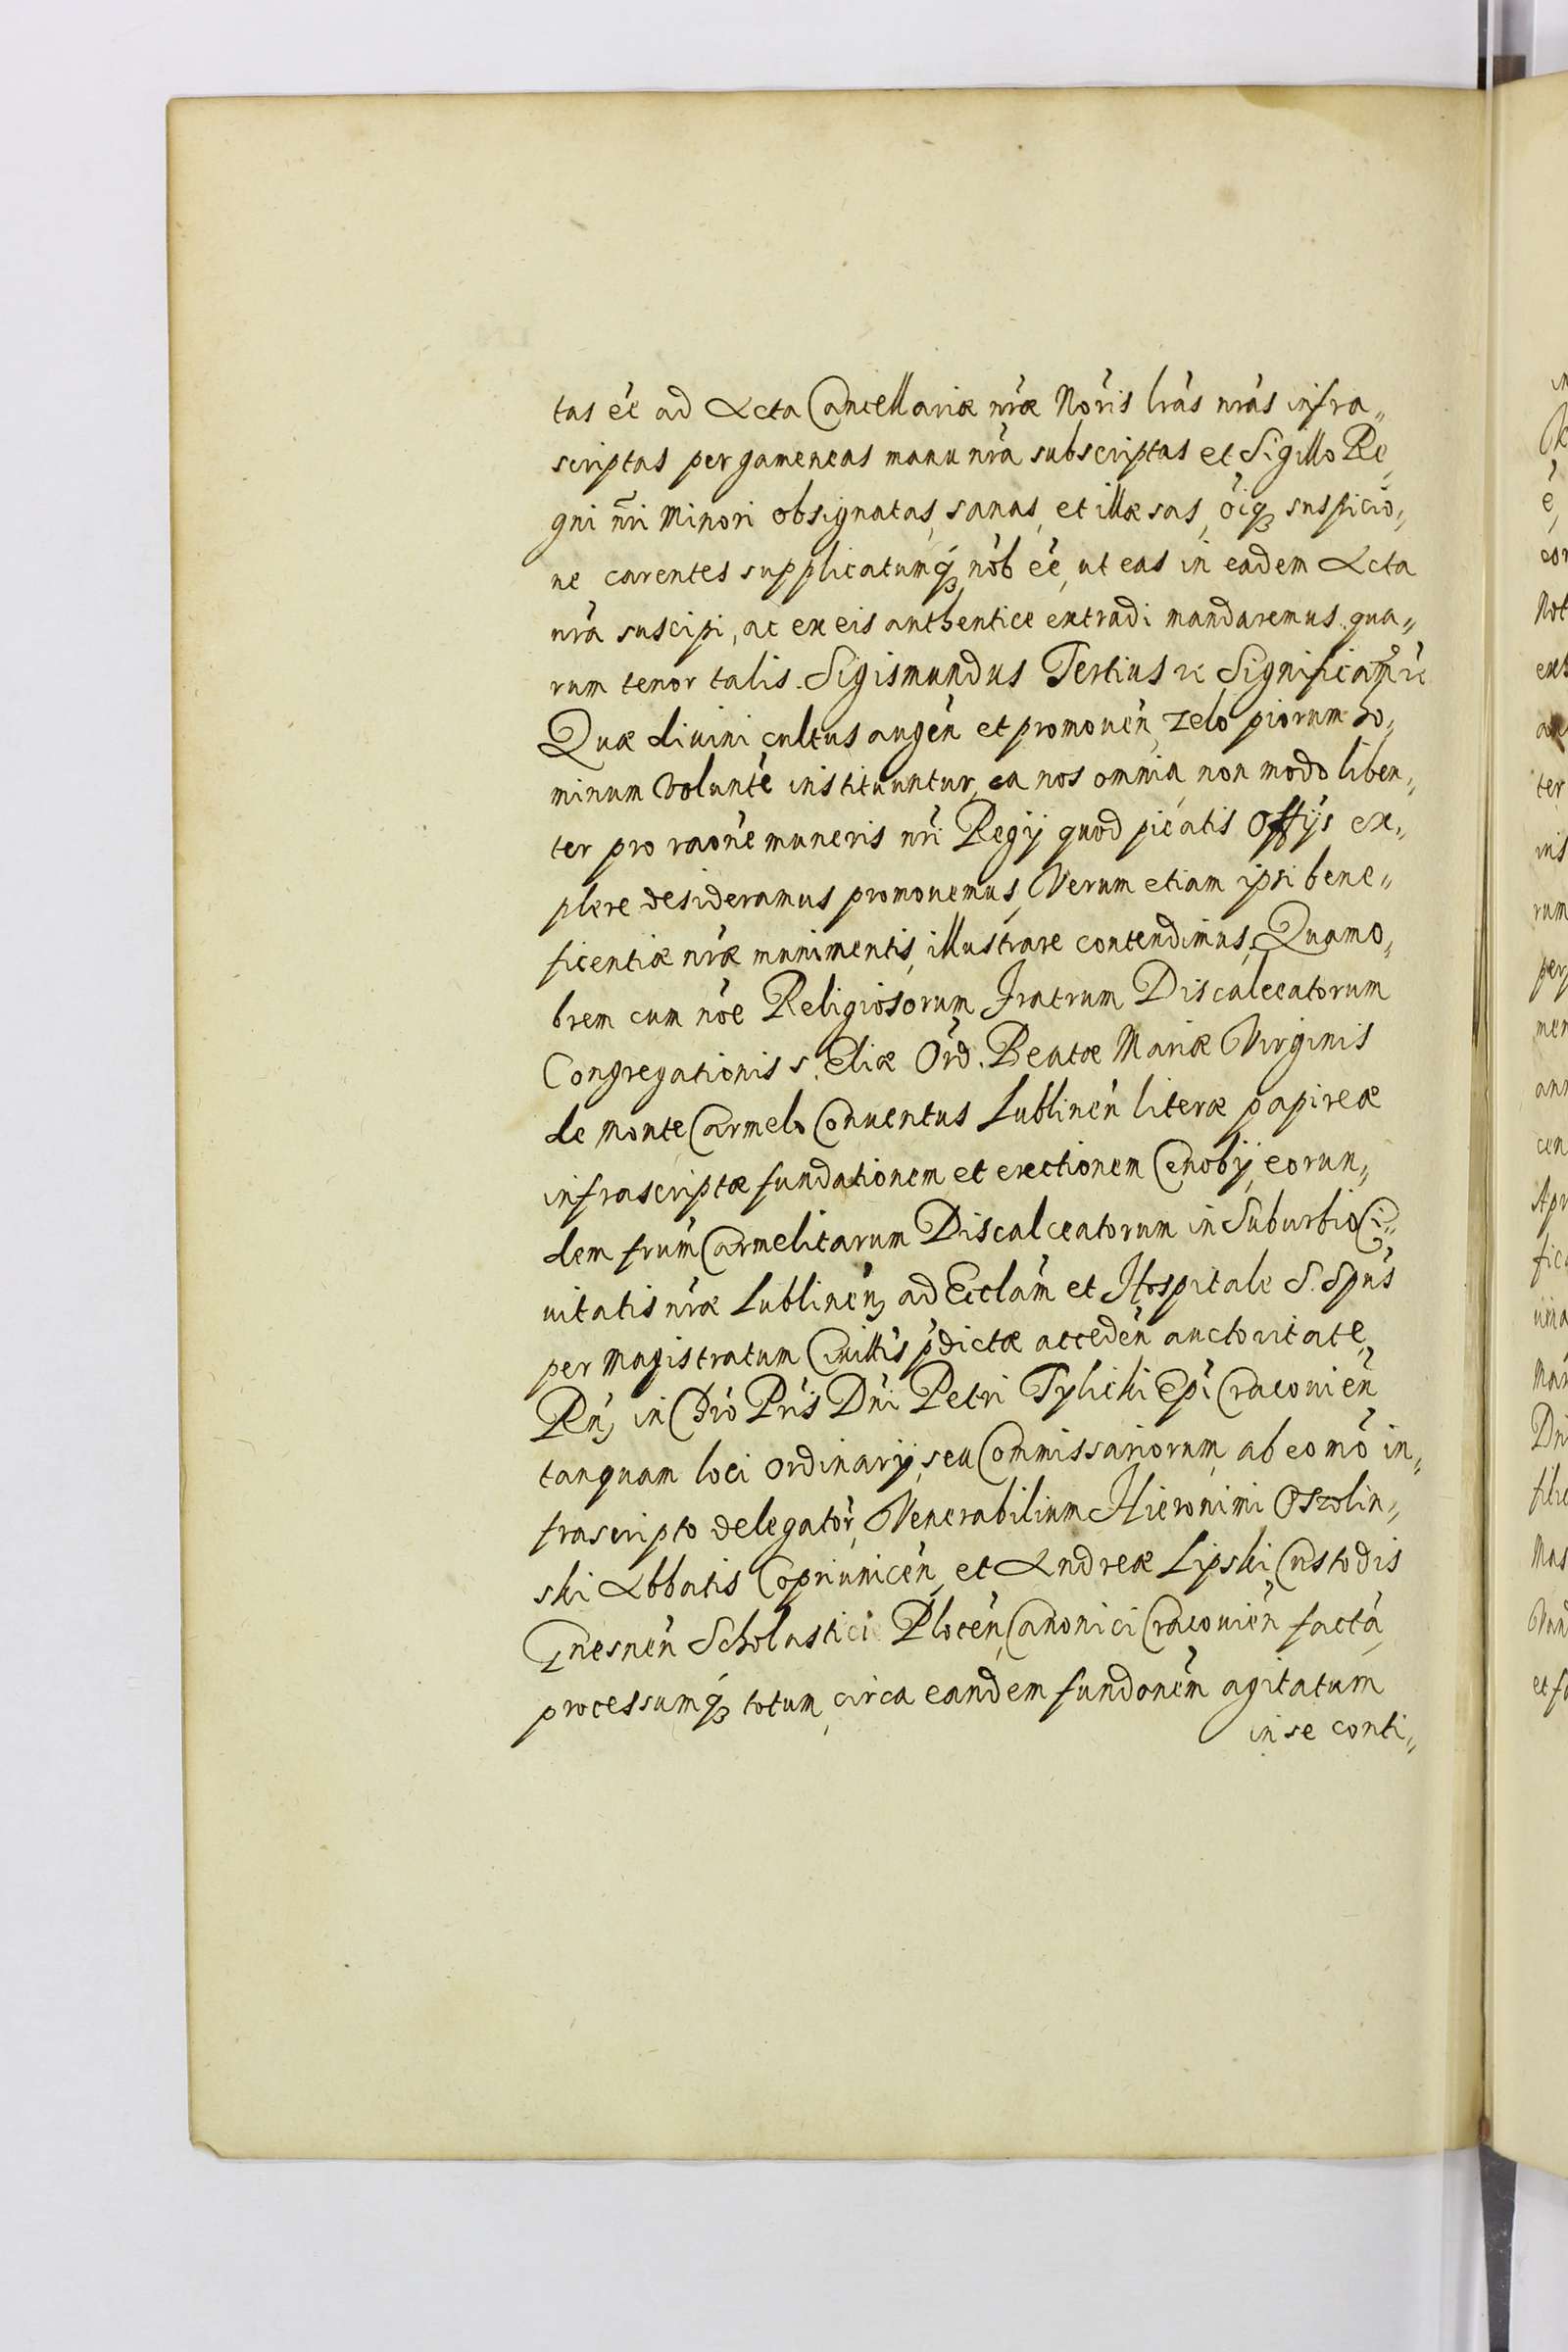 tas eẽ ad Acta Cancellariæ nr̃æ Nor̃is lr̃as nr̃as infra„
scriptas pergameneas manu nr̃a subscriptas et Sigillo Re„
gni nr̃i Minori obsignatas, sanas, et illæsas, oĩq; suspicio„
ne carentes supplicatumq; nob̃ eẽ, ut eas in eadem Acta
nr̃a suscipi, ac ex eis authentice extradi mandaremus. qua„
rum tenor talis. Sigismundus Tertius &c Significam̃ &c
Quæ diuini cultus augeñ et promoueñ, zelo piorum ho„
minum Volunte͂ instituuntur, ea nos omnia, non modo liben„
ter pro raõne muneris nr̃i Regij quod piẽatis Offijs ex„
plere desideramus promouemus, Verum etiam ipsi bene„
ficentiæ nr̃æ munimentis, illustrare contendimus, Quamo„
brem cum nõe Religiosorum Fratrum Discalceatorum
Congregationis S. Eliæ Ord̃. Beatæ Mariæ Virginis
de Monte Carmelo Conuentus Lublineñ literæ papireæ
infrascriptæ fundationem et erectionem Cenobij, eorun„
dem frum̃ Carmelitarum Discalceatorum in Suburbio Ci„
uitatis nr̃æ Lublineñ, ad Eccla͂m et Hospitale S. Spus̃
per Magistratum Ciuittis̃ p̃dictæ accedeñ auctoritate,
Rñ, in Chro͂ Pris͂ Dñi Petri Tylicki Ep̃i Cracouieñ
tanquam loci Ordinarij, seu Commissariorum, ab eo mõ in„
frascripto delegator̃, Venerabilium Hieronimi Oszolin„
ski Abbatis Copriuniceñ, et Andreæ Lipski Custodis
Gnesneñ Scholastici Ploceñ, Canonici Cracouieñ facta͂,
processumq; totum, circa eandem fundone͂m agitatum
in se conti„